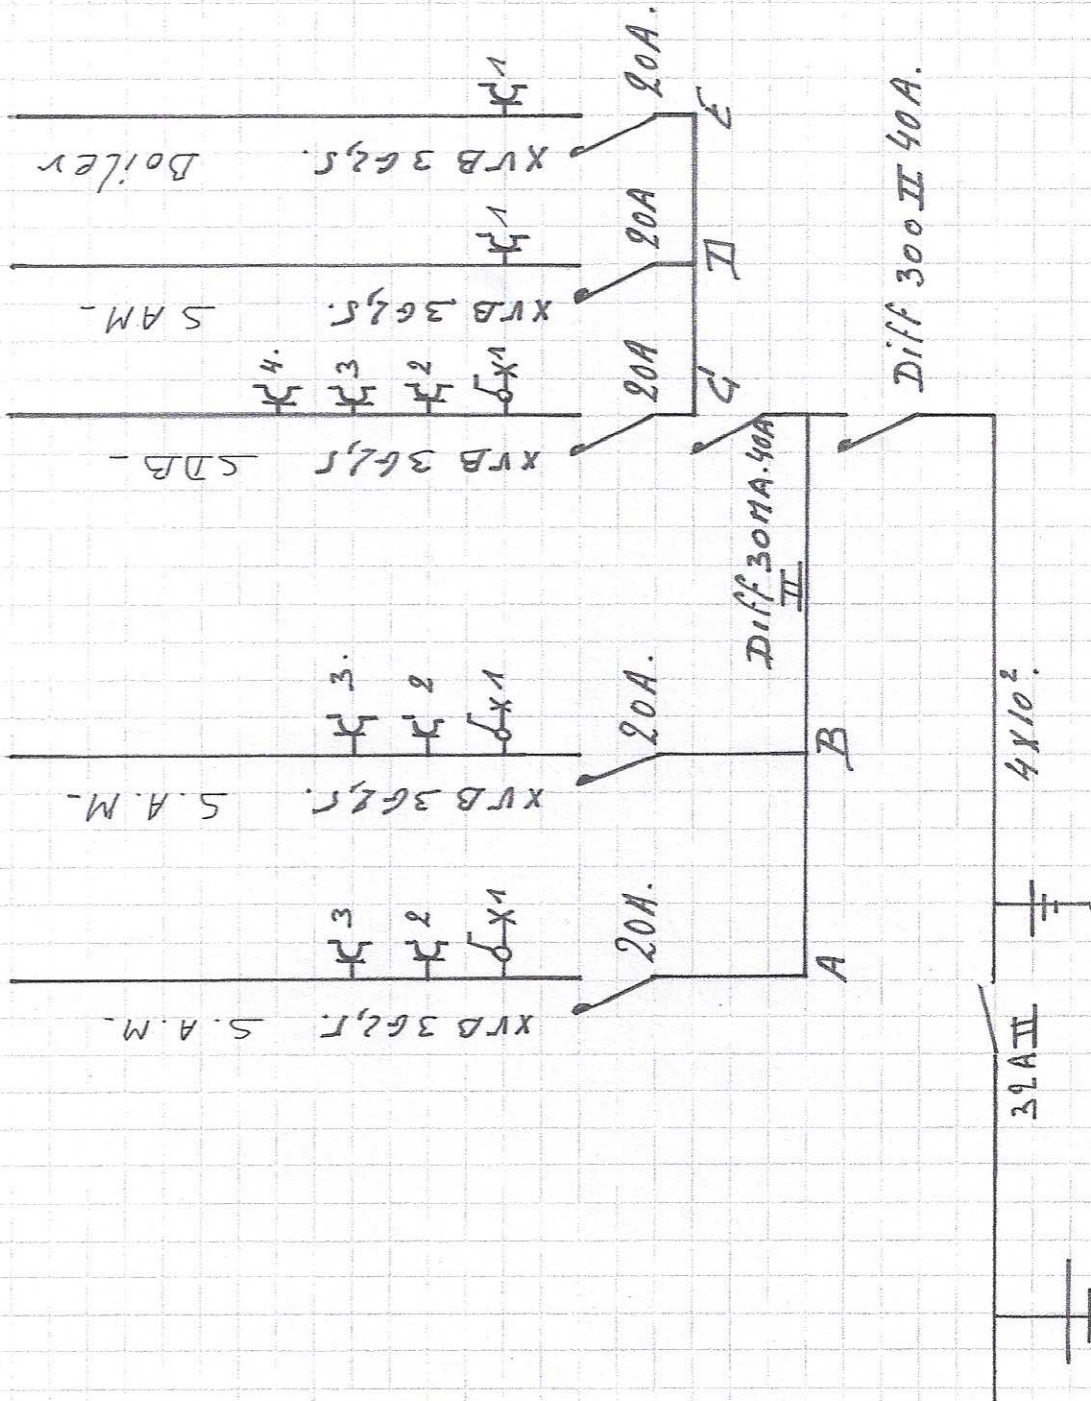 Boiler
XVB 3G2,5.
1
20A.
E
SAM-
XVB 3G2,5.
1
20A
D
SDB-
XVB 3G2,5
4.
3
2
X1
20A
C
Diff 30MA.40A
II
Diff 300 II 40A.
S.A.M-
XVB 3G2,5.
3.
2
X1
20A.
B
S.A.M-
XVB 3G2,5.
3
2
X1
20A.
A
4X10².
32A II